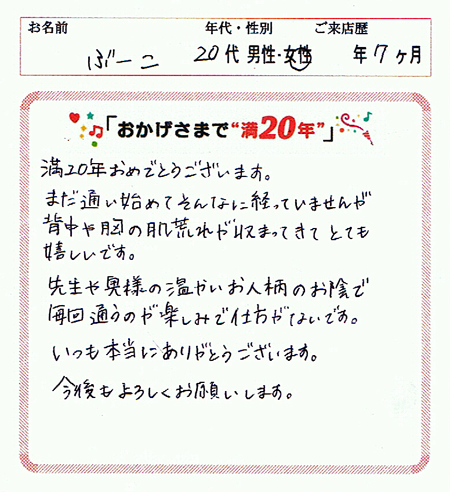 お名前 年代・性別 ご来店歴
ぶーこ 20代 男性・女性 年7ヶ月
「おかげさまで"満20年"」
満20年おめでとうございます。
まだ通い始めてそんなに経っていませんが
背中や胸の肌荒れが収まってきてとても
嬉しいです。
先生や奥様の温かいお人柄のお陰で
毎回通うのが楽しみで仕方がないです。
いつも本当にありがとうございます。
今後もよろしくお願いします。